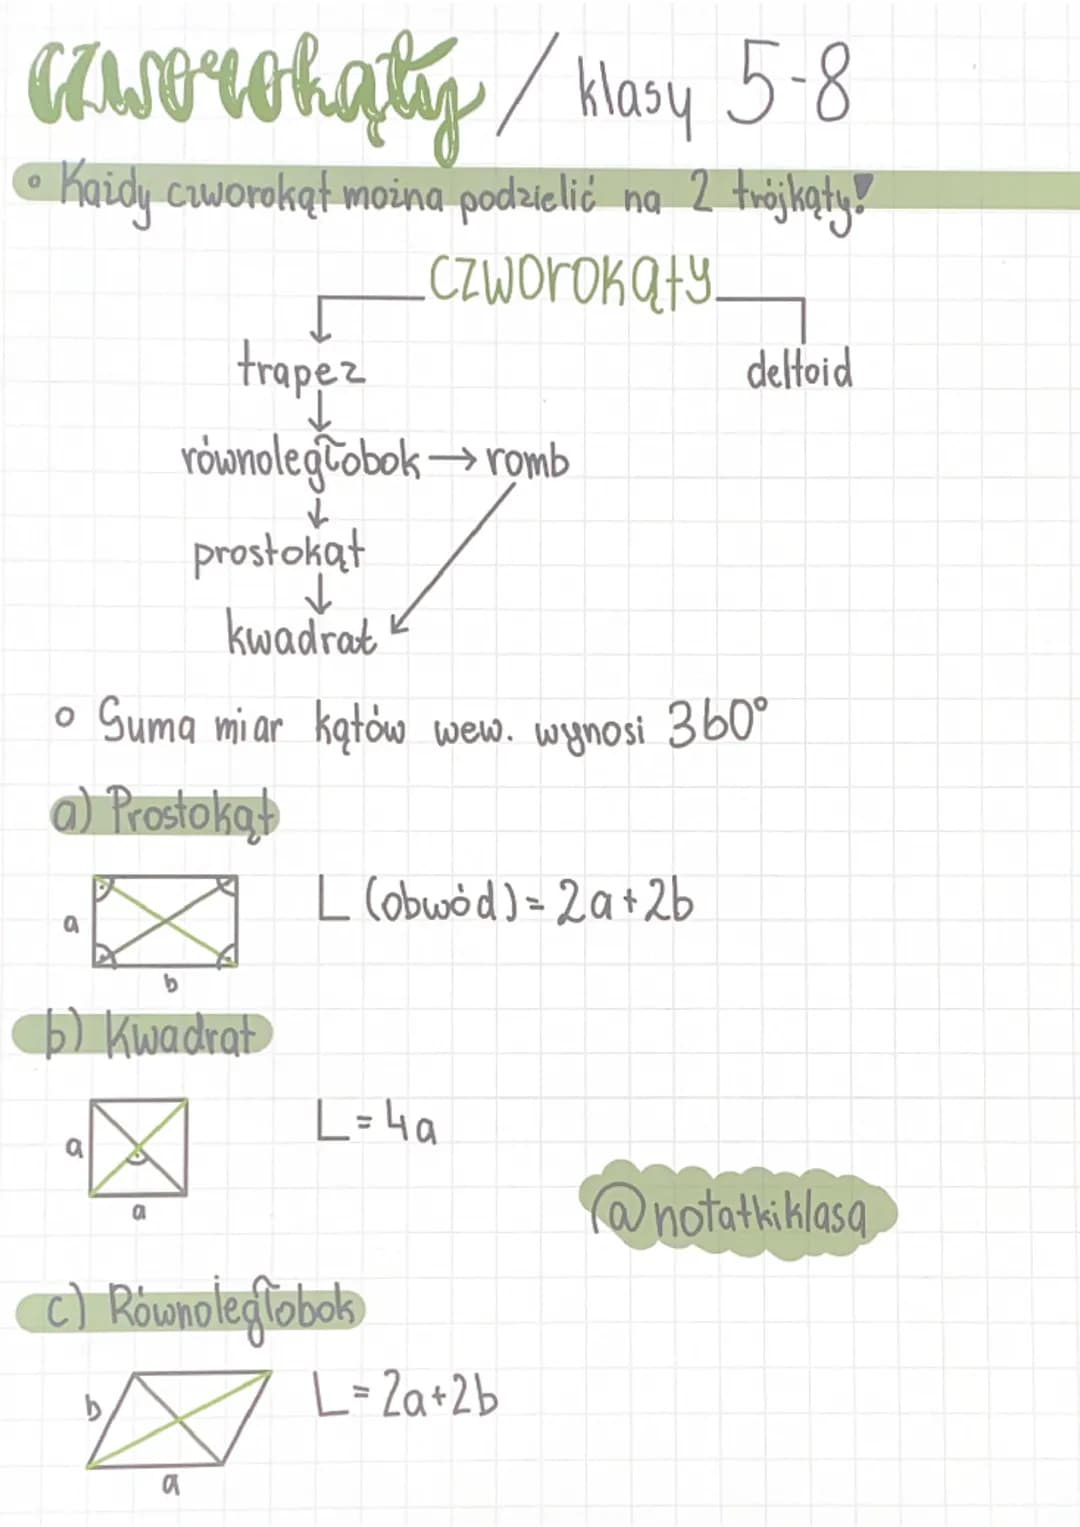 czworokąty / klasy 5-8
• Każdy czworokąt można podzielić na 2 trójkąty!
czworokąty
trapez
deltoid
równoległobok → romb
prostokąt
kwadrat
o Suma miar kątów wew. wynosi 360°
a) Prostokąt
L (obwód) = 2a+2b
a
b
b) Kwadrat
L=4a
a
a
@notatkiklasa
c) Równoległobok
L=2a+2b
b
a